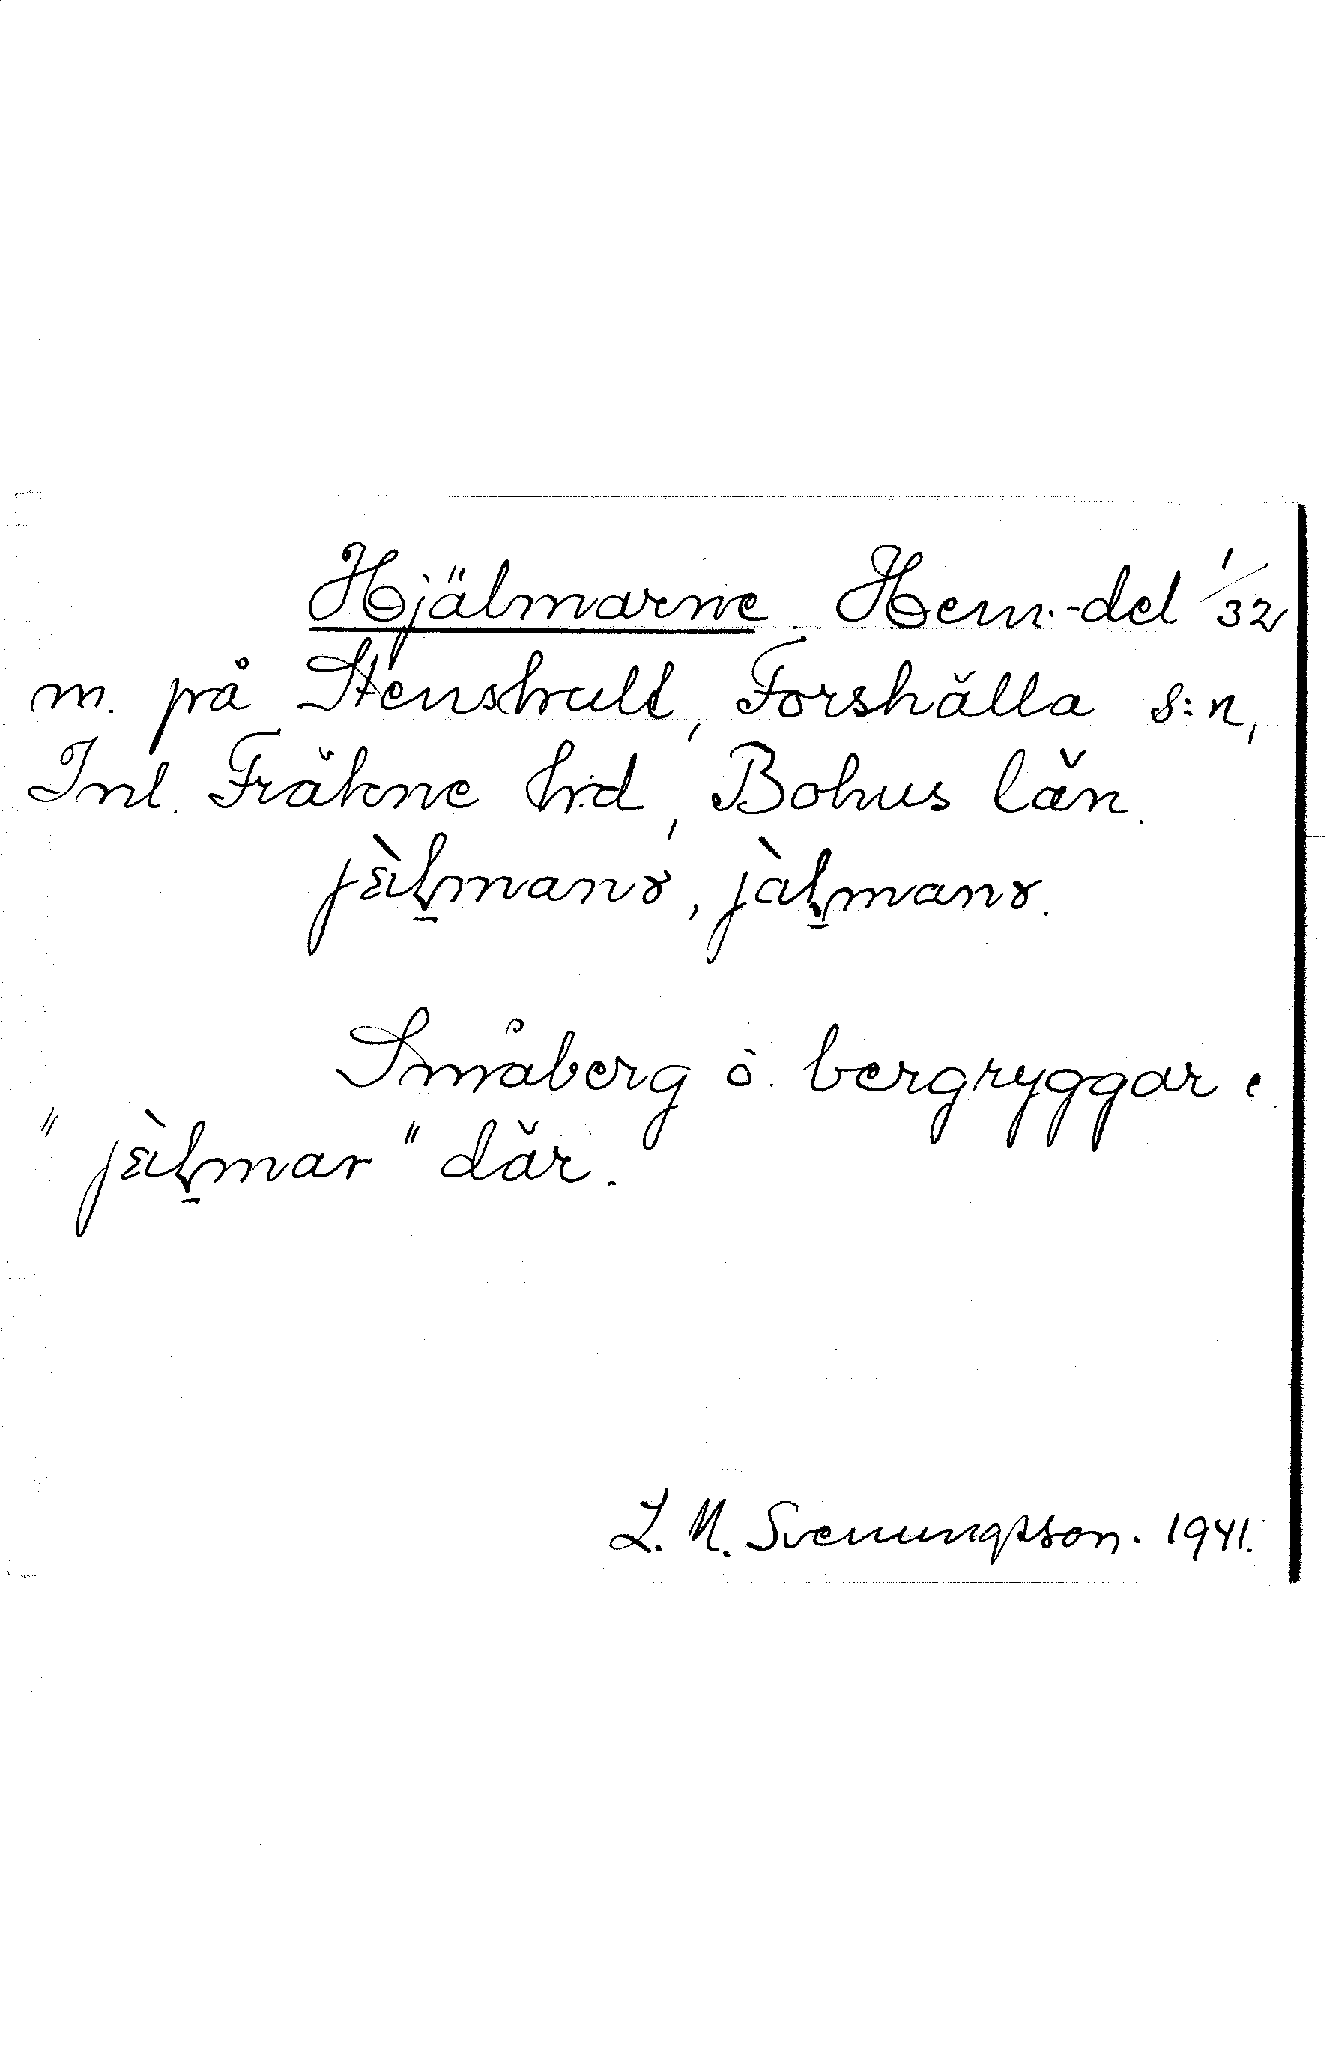 Hjälmarne. Hem.-del 1/32
m. på Stenshult, Forshälla s:n,
Inl. Fräkne hrd, Bohus län.
jɛ̀ḷmanɤ, jàḷmanɤ.
Småberg o. bergryggar.
"jɛ̀ḷmar" där.
L. M. Svenungsson. 1941.